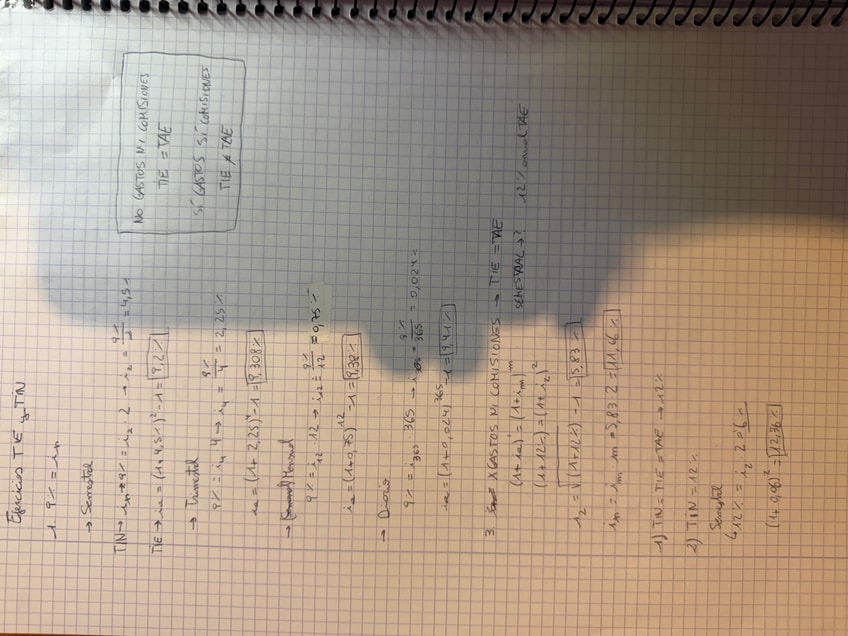 Ejercicios TIE y TIN
1. 9% = in
→ Semestral
TIN → in = 9% = i2 · 2 → i2 = 9%/2 = 4,5%
TIE → ia = (1+4,5%)² - 1 = 9,2%
→ Trimestral
9% = i4 · 4 → i4 = 9%/4 = 2,25%
ia = (1+2,25)⁴ - 1 = 9,308%
→ Mensual
9% = i12 · 12 → i12 = 9%/12 = 0,75%
ia = (1+0,75)¹² - 1 = 9,38%
→ Diario
9% = i365 · 365 → i365 = 9%/365 = 0,024%
ia = (1+0,024)³⁶⁵ - 1 = 9,41%
NO GASTOS NI COMISIONES
TIE = TAE
SÍ GASTOS SÍ COMISIONES
TIE ≠ TAE
3. X GASTOS NI COMISIONES → TIE = TAE
(1+ia)¹ = (1+im)ᵐ SEMESTRAL → ? 12% anual TAE
(1+12%) = (1+i2)²
i2 = √(1+12%) - 1 = 5,83%
in = im · m = 5,83 · 2 = 11,66%
1) TIN = TIE = TAE → 12%
2) TIN = 12%
Semestral
↳ 12% = i2 · 2 = 6%
(1+0,06)² = 12,36%